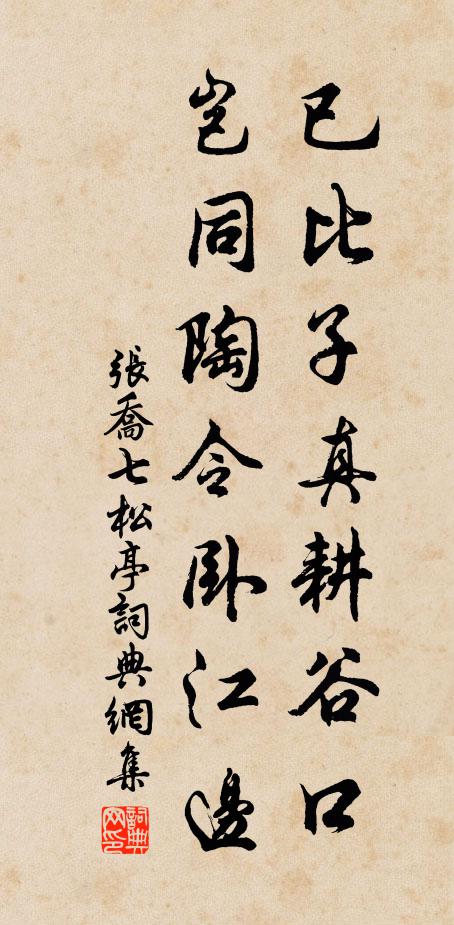 已比子真耕谷口
豈同陶令臥江邊
張喬七松亭詞典網集
詞典網印